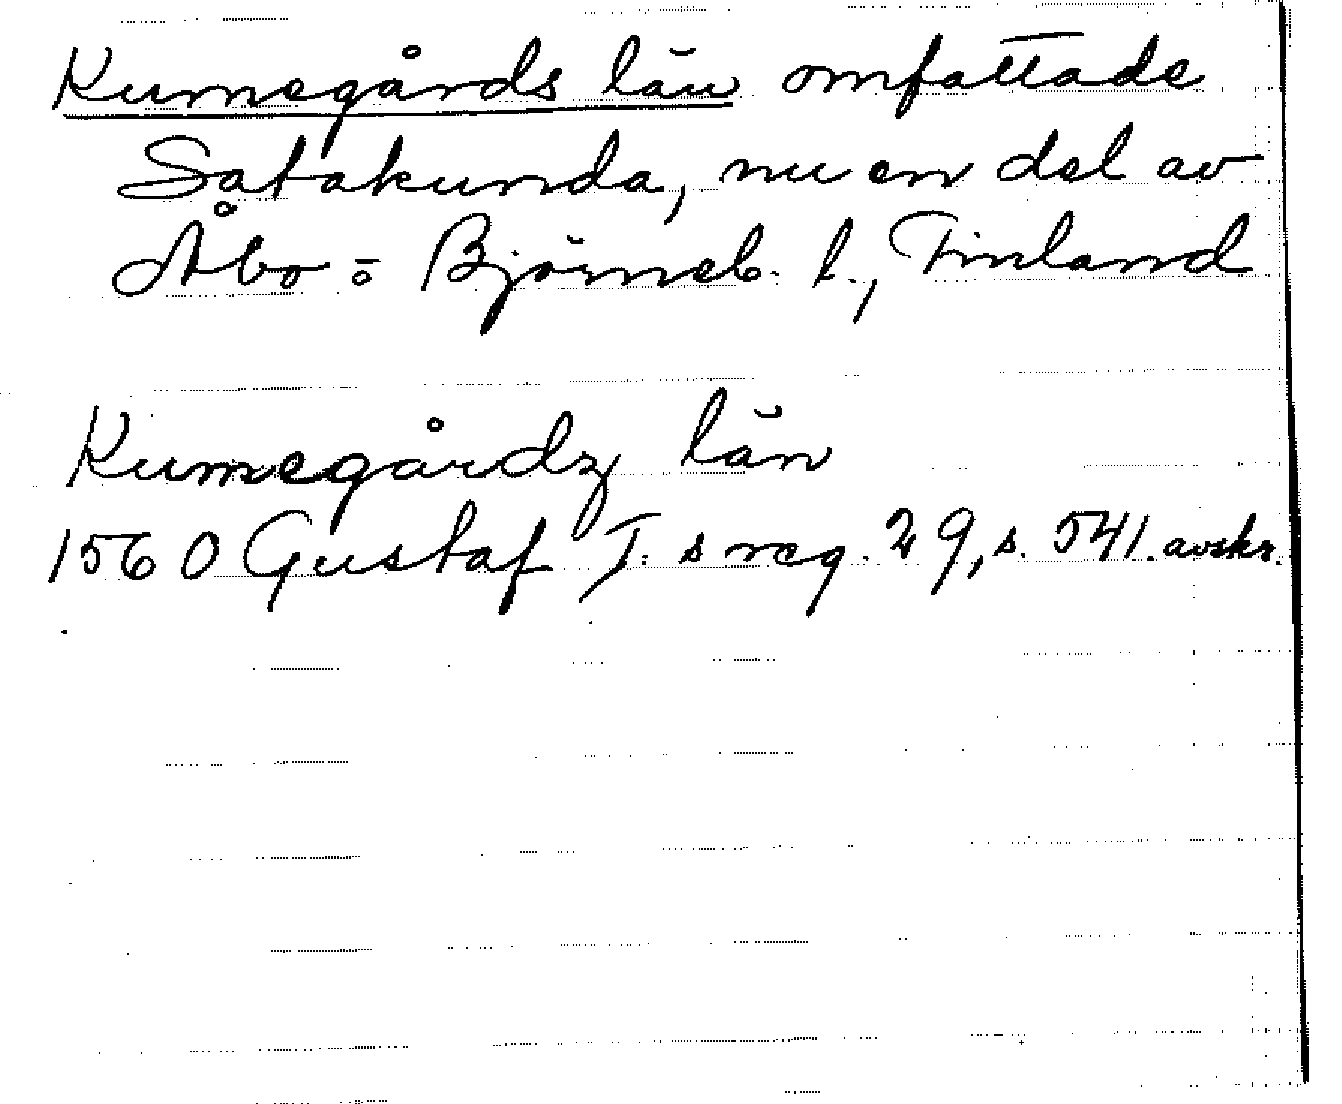 Kumegårds län omfattade
Satakunda, nu en del av
Åbo- o Björneb. l., Finland
Kumegårdz län
1560 Gustaf I:s reg. 29, s. 541. avskr.